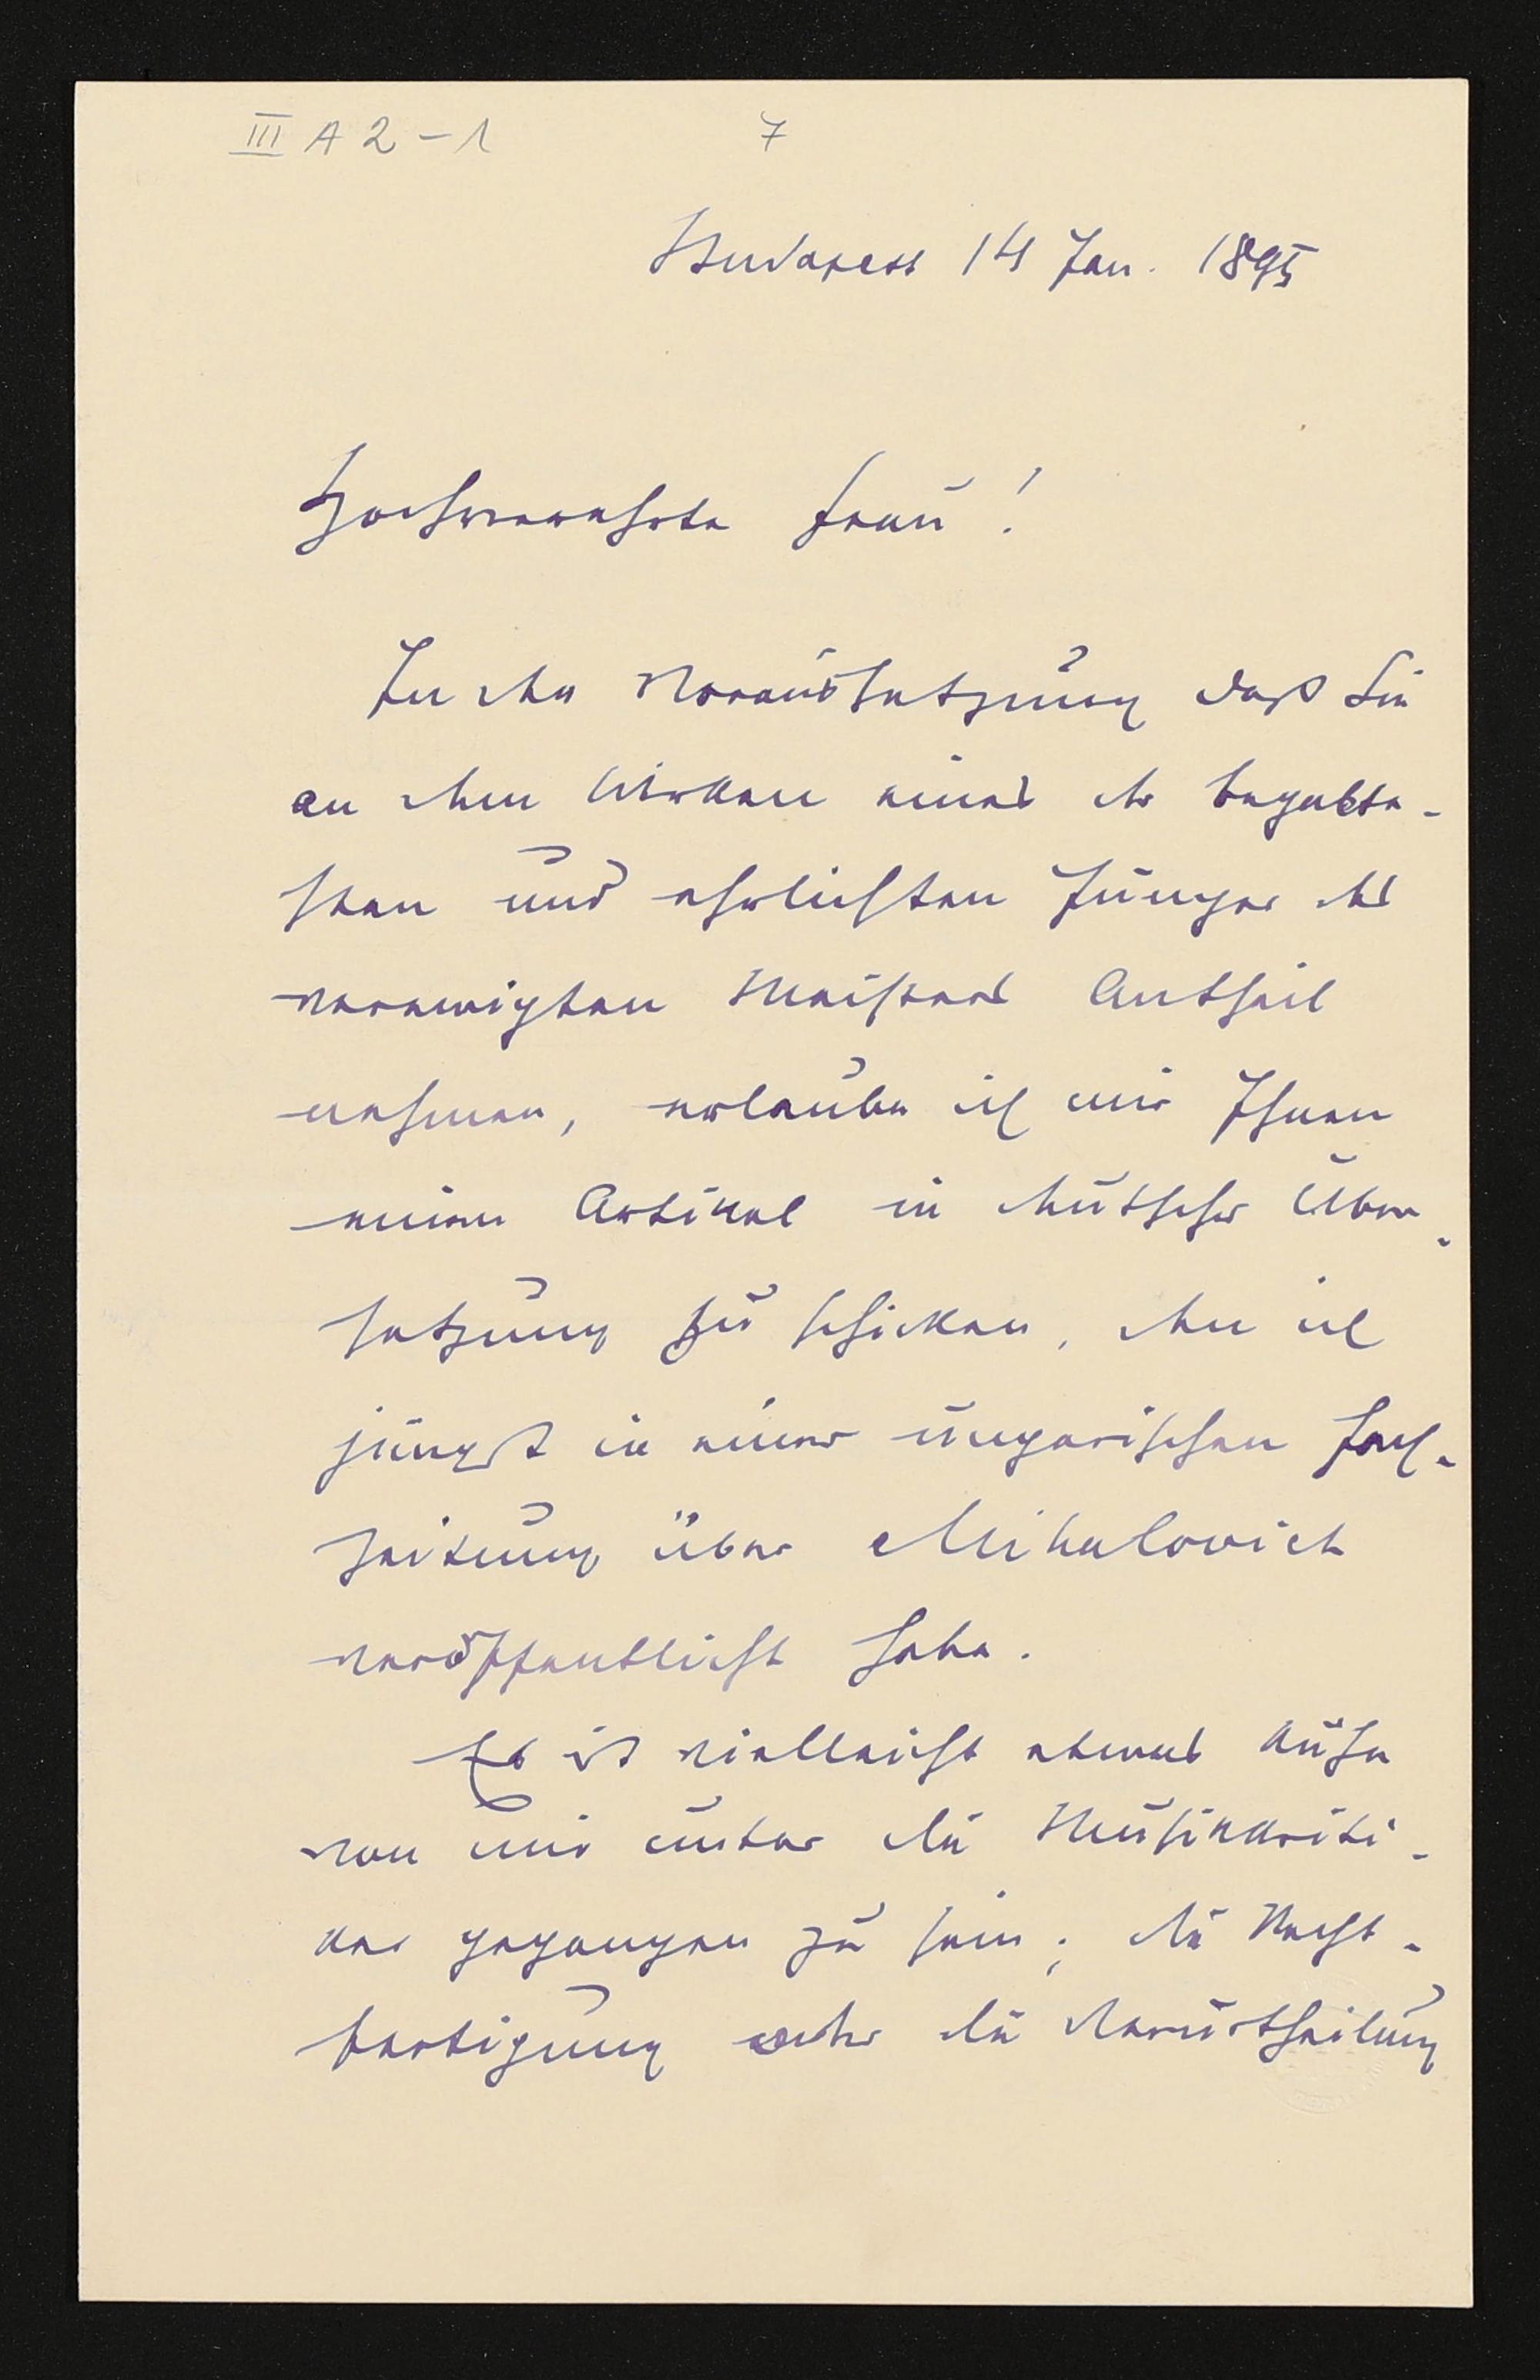 III A 2 - 1 7
Budapest 14 Jan. 1895
Hochverehrte Frau!
In der Voraussetzung daß Sie
an dem Wirken eines der begabte-
sten und ehrlichsten Jünger des
verewigten Meisters Antheil
nehmen, erlaube ich mir Ihnen
einen Artikel in deutscher Über-
setzung zu schicken, den ich
jüngst in einer ungarischen Fach-
zeitung über Mihalovich
veröffentlicht habe.
Es ist vielleicht etwas kühn
von mir unter die Musikkriti-
ker gegangen zu sein; die Recht-
fertigung oder die Verurtheilung